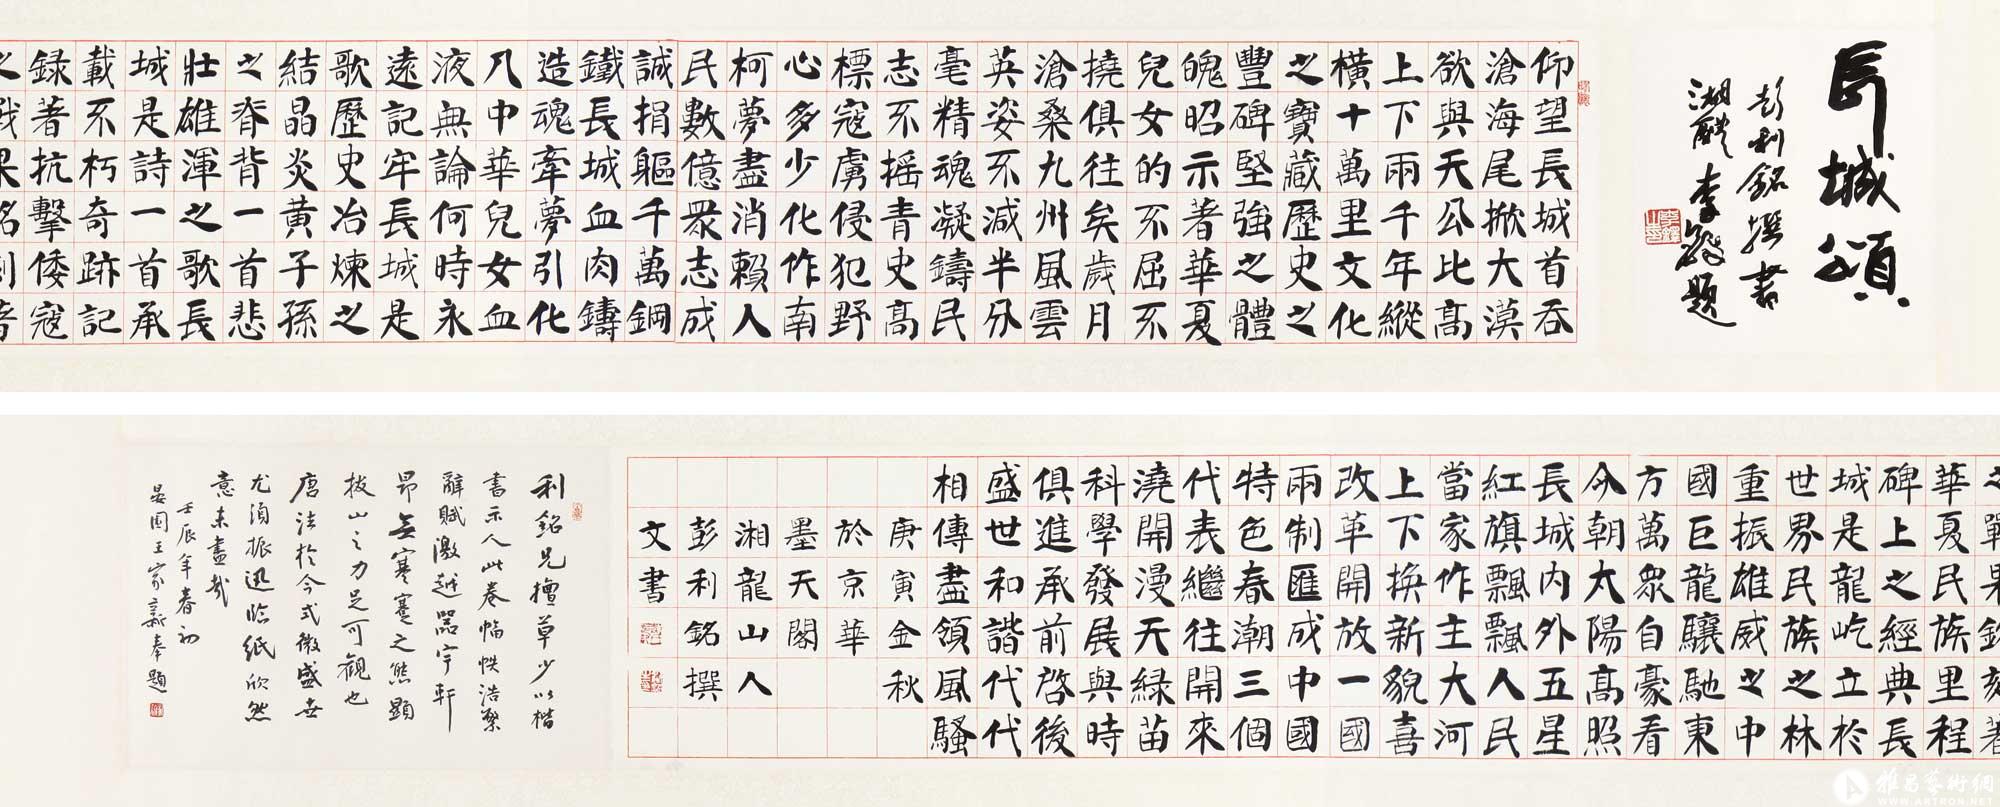 長城頌
彭利銘撰書
湖醴李鐸題
仰望長城首吞
滄海尾掀大漠
欲與天公比高
上下兩千年縱
橫十萬里文化
之寶藏歷史之
豐碑堅強之體
魄昭示著華夏
兒女的不屈不
撓俱往矣歲月
滄桑九州風雲
英姿不減半分
毫精魂凝鑄民
志不搖青史高
標寇虜侵犯野
心多少化作南
柯夢盡消賴人
民數億眾志成
誠捐軀千萬鋼
鐵長城血肉鑄
造魂牽夢引化
入中華兒女血
液無論何時永
遠記牢長城是
歌歷史冶煉之
結晶炎黃子孫
之脊背一首悲
壯雄渾之歌長
城是詩一首承
載不朽奇跡記
錄著抗擊倭寇
之戰果銘刻著
之戰果銘刻著
華夏民族里程
碑上之經典長
城是龍屹立於
世界民族之林
重振雄威之中
國巨龍驤馳東
方萬眾自豪看
今朝太陽高照
長城內外五星
紅旗飄飄人民
當家作主大河
上下換新貌喜
改革開放一國
兩制匯成中國
特色春潮三個
代表繼往開來
澆開漫天綠苗
科學發展與時
俱進承前啓後
盛世和諧代代
相傳盡領風騷
庚寅金秋
於京華
墨天閣
湘龍山人
彭利銘撰
文書
利銘兄擅草少以楷
書示人此卷幅帙浩繁
辭賦激越器宇軒
昂無寒蹇之態顯
拔山之力足可觀也
唐法於今式微盛世
尤須振迅臨紙欣然
意未盡哉
壬辰年春初
晏園王家新奉題
雅昌藝術網
WWW.ARTRON.NET